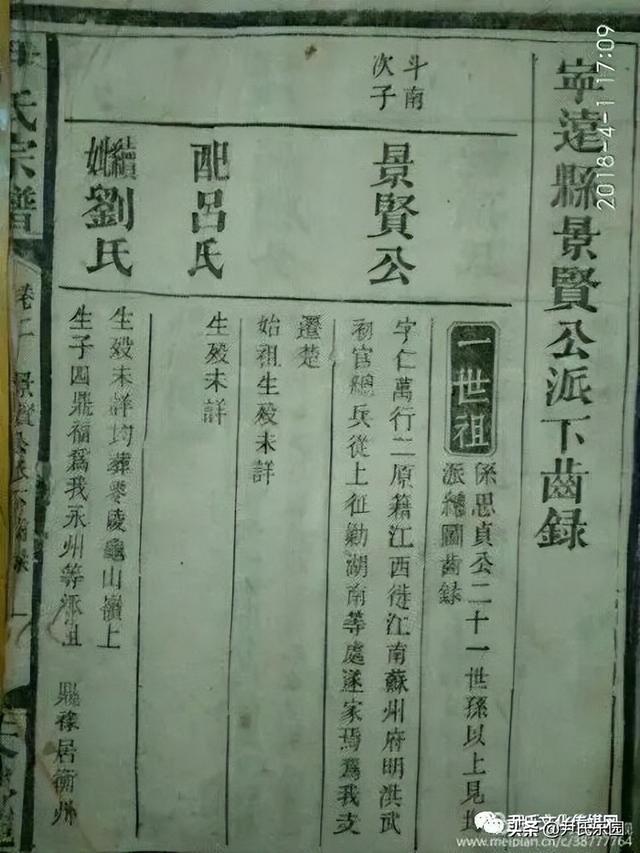 寧遠縣景賢公派下齒錄
一世祖
係思貞公二十一世孫以上見
派繪圖齒錄
斗南
次子
景賢公
字仁萬行二原籍江西徙江南蘇州府明洪武
初官總兵從上征勦湖南等處遂家焉為我支
遷楚
始祖生殁未詳
配呂氏
生殁未詳
續
妣劉氏
生殁未詳均葬零陵龜山嶺上
生子四鼎福為我永州等派祖 鼎祿居衡州
氏宗譜
卷二
2018-4-1 17:09
尹氏文化传媒网
头条@尹氏乐园
www.meipian.cn/c/38777764